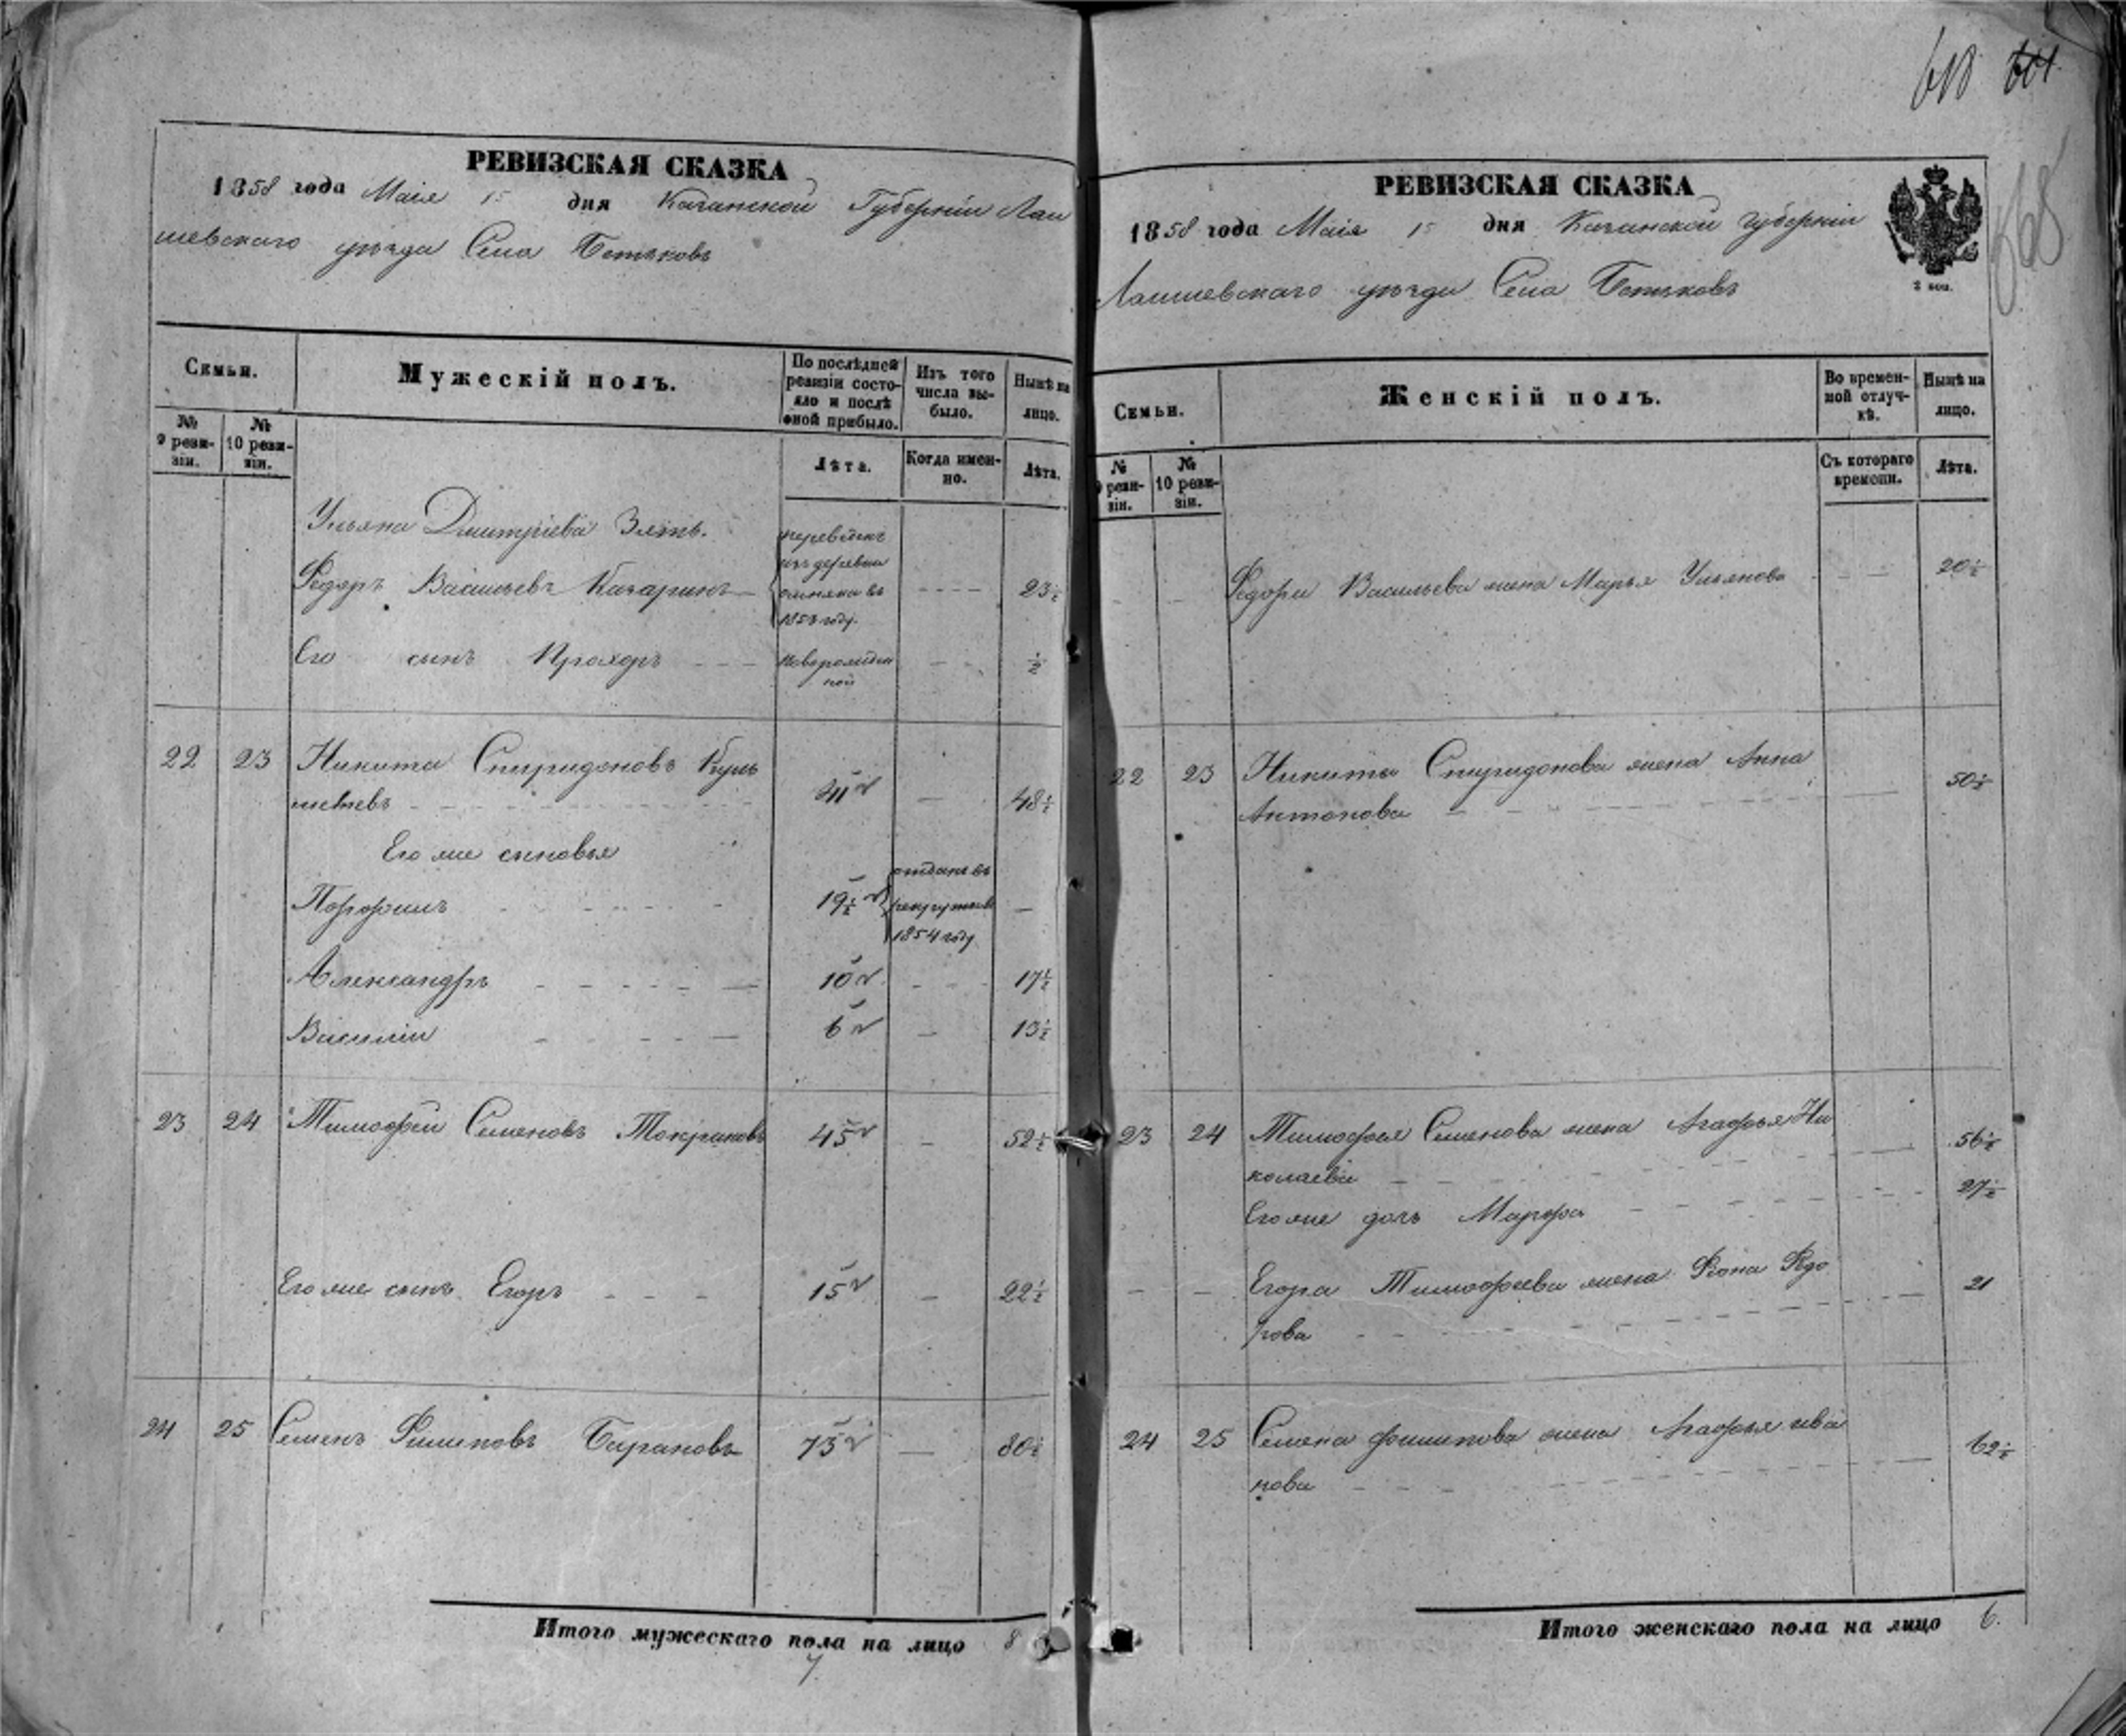 618 611
568
РЕВИЗСКАЯ СКАЗКА
1858 года Маія 15 дня Казанской Губерніи Лаи
шевскаго уѣзда Села Бетьковъ
Семьи.
Мужескій полъ.
По послѣдней ревизіи состояло и послѣ оной прибыло.
Изъ того числа выбыло.
Нынѣ на лицо.
№ 9 ревизіи.
№ 10 ревизіи.
Лѣта.
Когда именно.
Лѣта.
Ульяна Дмитріева Зять.
Федоръ Васильевъ Качаринъ
переведенъ изъ деревни в 1858 году
23½
Его сынъ Прохоръ
новорожденной
½
22 23 Никита Спиридоновъ Куль
41
48½
Его же сыновья
Порфирій
19½
отданъ въ рекруты в 1854 году
Александръ 10 17½
Василій 6 13½
23 24 Тимофей Семеновъ Токрановъ 45 52½
Его же сынъ Егоръ 15 22½
24 25 Семенъ Филиповъ Барановъ 73 80½
Итого мужескаго пола на лицо 8
7
РЕВИЗСКАЯ СКАЗКА
1858 года Маія 15 дня Казанской губерніи
Лаишевскаго уѣзда Села Бетьковъ
2 коп.
Семьи.
Женскій полъ.
Во временной отлучкѣ.
Нынѣ на лицо.
№ 9 ревизіи.
№ 10 ревизіи.
Съ котораго времени.
Лѣта.
Федора Васильева жена Марья Ульянова 20½
22 23 Никиты Спиридонова жена Анна
Антонова 50½
23 24 Тимофея Семенова жена Агафья Ни
колаева 56½
Его же дочь Марфа 27½
Егора Тимофеева жена Федо
рова 21
24 25 Семена Филипова жена Агафья ива
нова 62½
Итого женскаго пола на лицо 6.